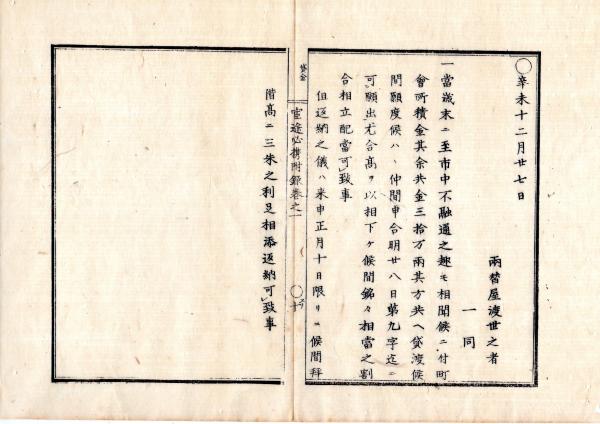 〇辛未十二月廿七日
両替屋渡世之者
一同
一當歳末ニ至市中不融通之趣モ相聞候ニ付町
會所積金其余共金三拾万両其方共ヘ貸渡候
間願度候ハヽ仲間申合明廿八日第九字迄ニ
可願出尤合高ヲ以相下ケ候間銘々相當之割
合相立配當可致事
但返納之儀ハ来申正月十日限リニ候間拜
貸金
宦途必携附録巻之一
〇
借高ニ三朱之利足相添返納可致事